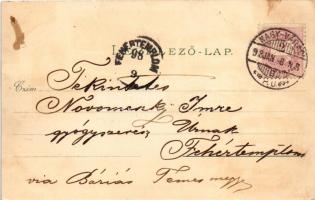 LEVELEZŐ-LAP.
FEHÉRTEMPLOM
98
9
NAGY-
98 JAN
Czím
Tekintetes
Novomeszky Imre
gyógyszerész Úrnak
Fehértemplom
via Báziás Temes megye